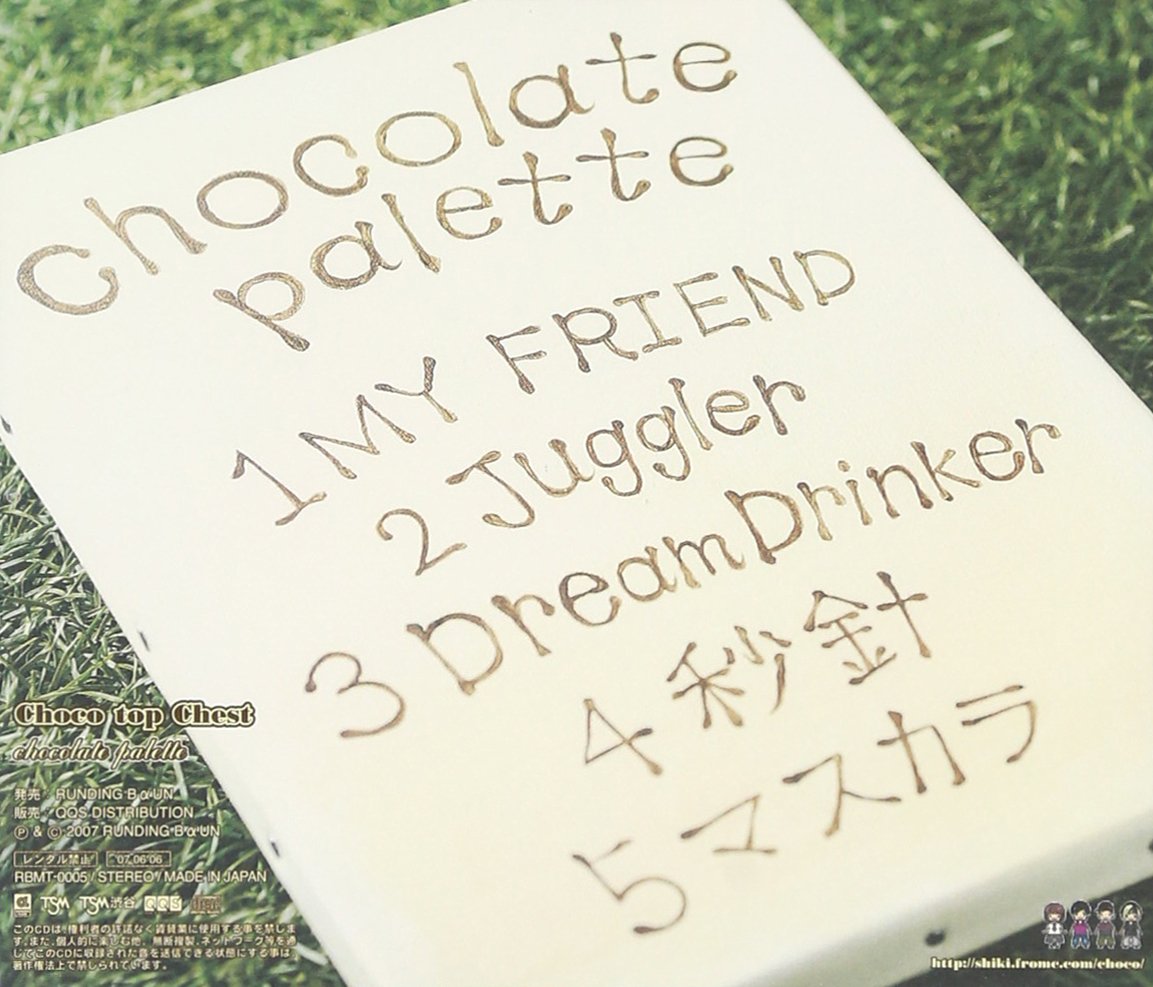 chocolate
palette
1 MY FRIEND
2 Juggler
3 DreamDrinker
4 秒針
5 マスカラ
Choco top Chest
chocolate palette
発売 RUNDING BαUN
販売 QQS DISTRIBUTION
Ⓟ & Ⓒ 2007 RUNDING BαUN
レンタル禁止 '07.06'06
RBMT-0005 / STEREO / MADE IN JAPAN
TSM TSM渋谷 QQS
このCDは、権利者の許諾なく賃貸業に使用する事を禁じま
す。また、個人的に楽しむ他、無断複製、ネットワーク等を通
じてこのCDに収録された音を送信できる状態にする事は、
著作権法上で禁じられています。
http://shiki.fromc.com/choco/